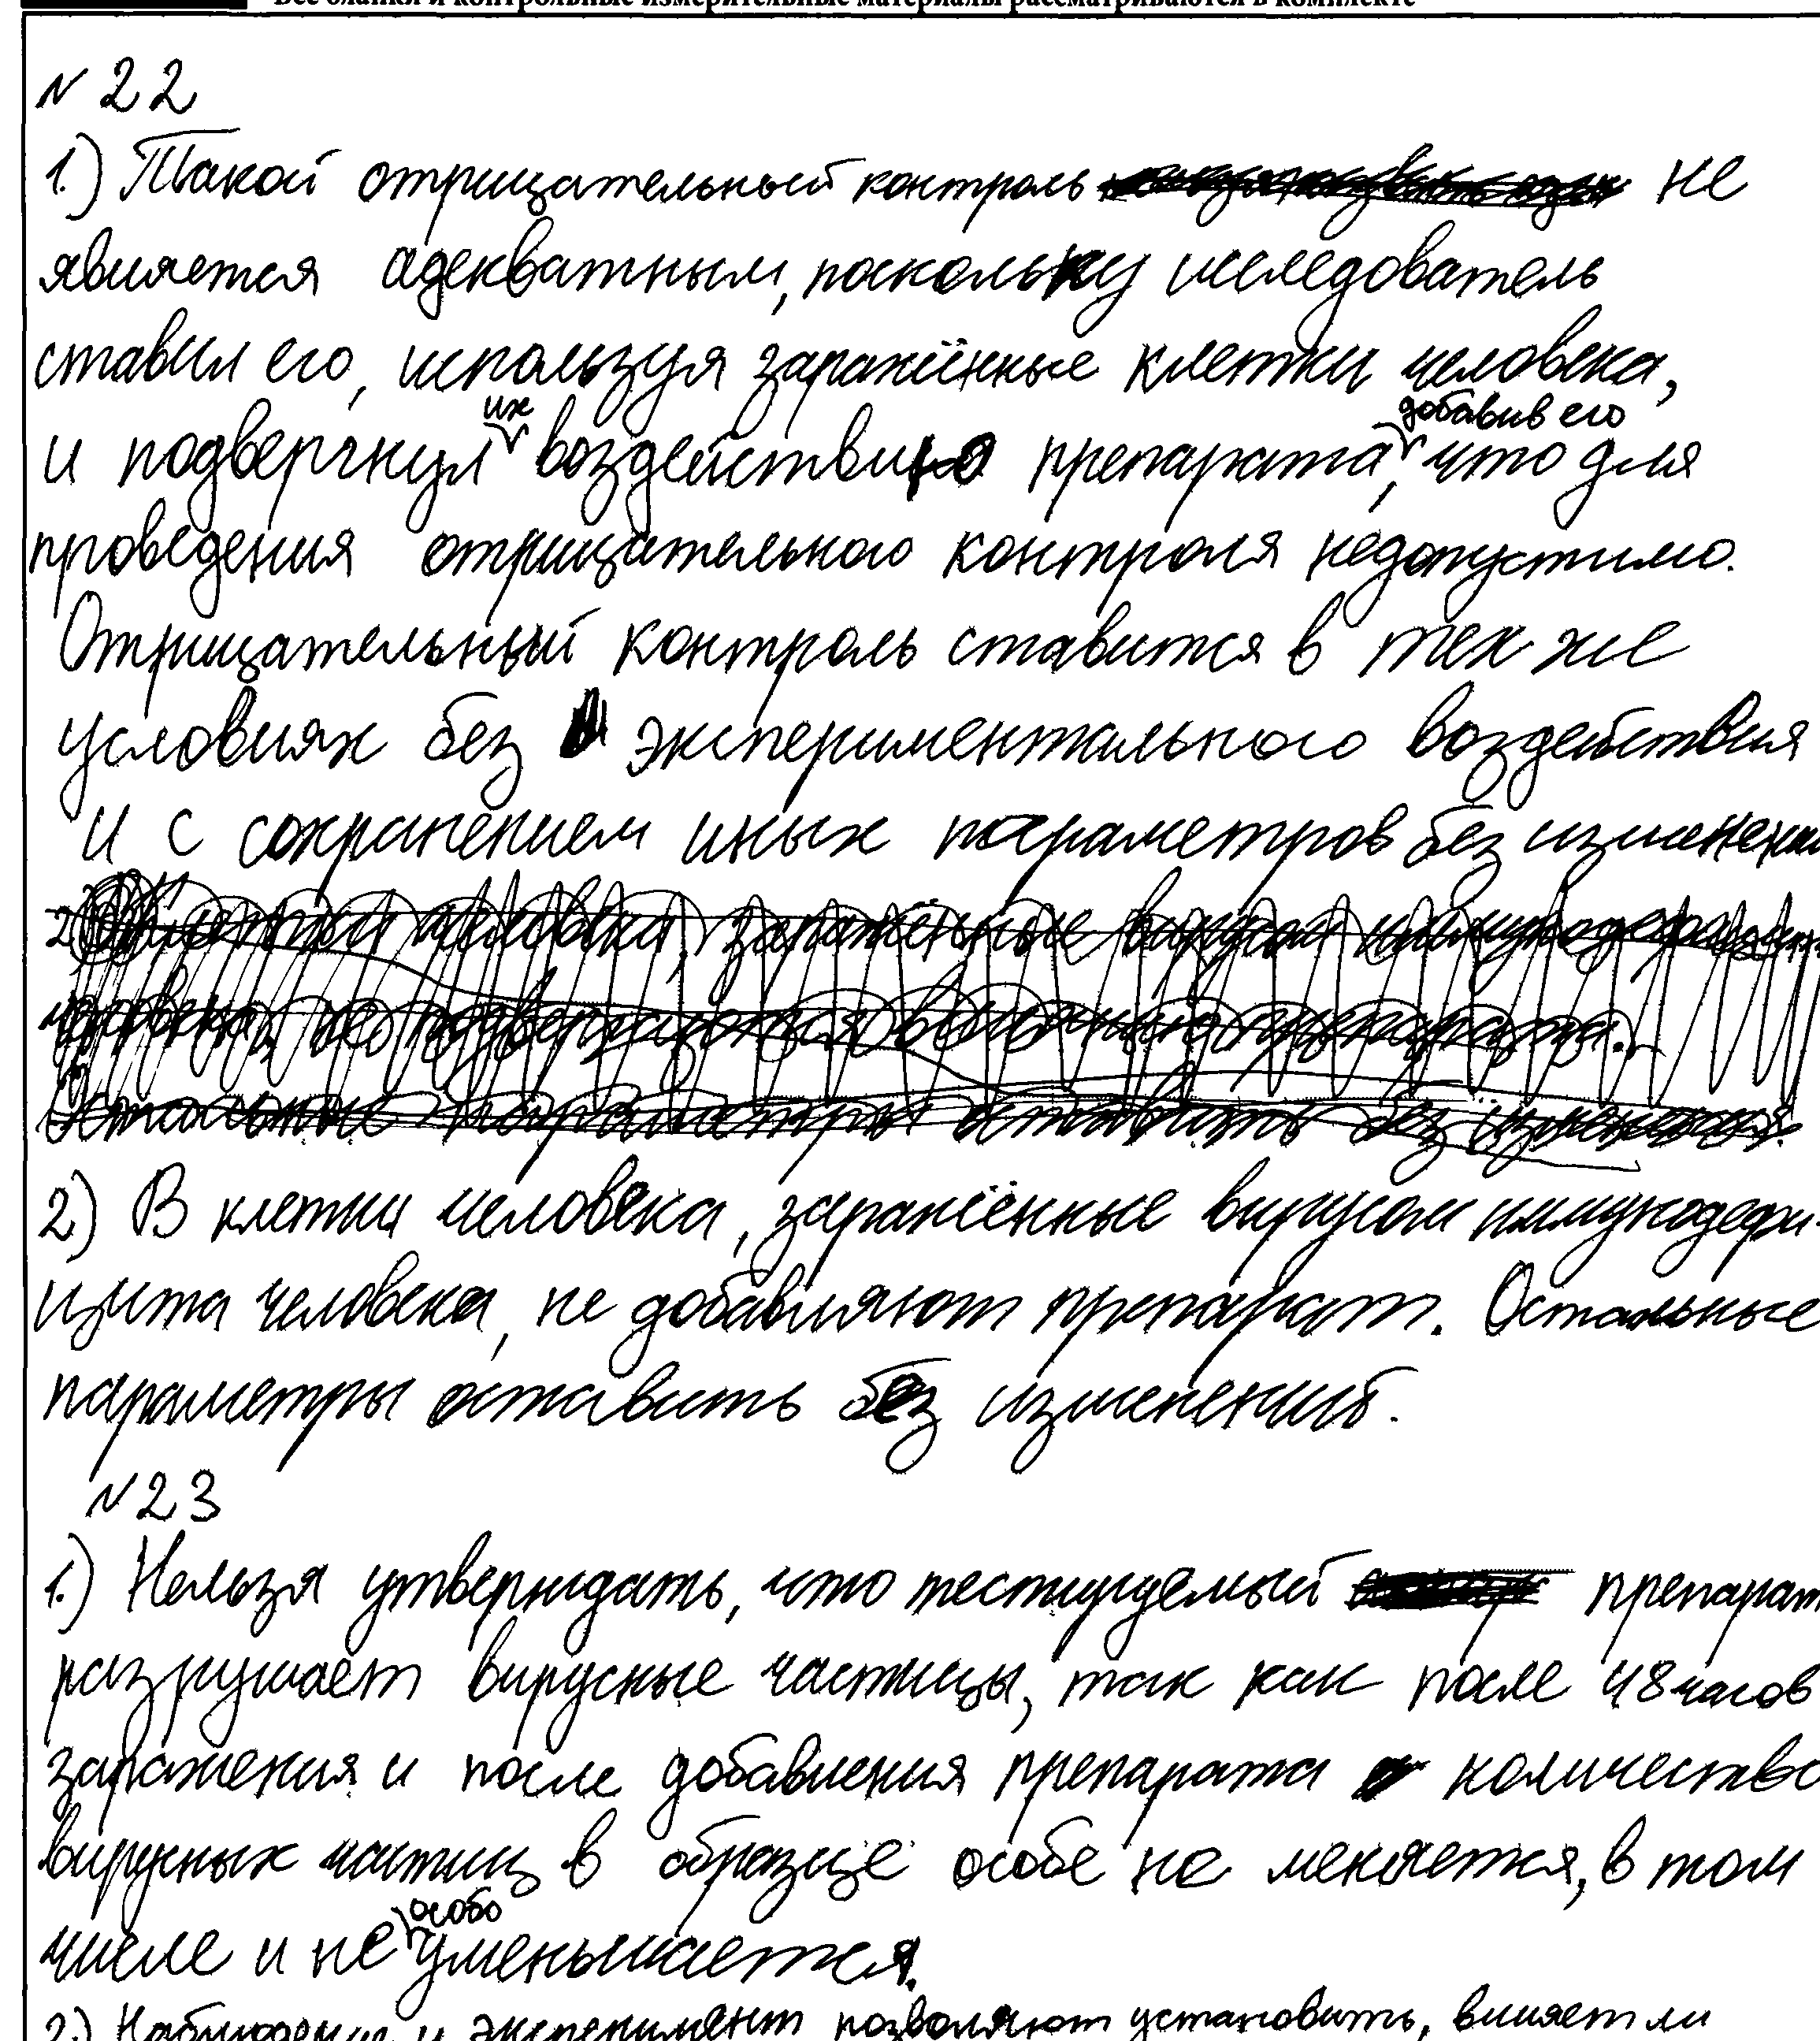 Все бланки и контрольные измерительные материалы рассматриваются в комплекте
N 22
1.) Такой отрицательный контроль не
является адекватным, поскольку исследователь
ставил его, используя заражённые клетки человека,
и подвергнул их воздействию препарата, добавив его что для
проведения отрицательного контроля недопустимо.
Отрицательный контроль ставится в тех же
условиях без экспериментального воздействия
и с сохранением иных параметров без изменени
2 клетки человека, заражённые вирусом иммунодефицит
человека, не подвергаются влиянию препарата.
Остальные параметры оставить без изменения.
2) В клетки человека, заражённые вирусом иммунодефи-
цита человека, не добавляют препарат. Остальные
параметры оставить без изменений.
N 23
1.) Нельзя утверждать, что тестируемый препарат
разрушает вирусные частицы, так как после 48 часов
заражения и после добавления препарата количество
вирусных частиц в образце особе не меняется, в том
числе и не особо уменьшается.
2.) Наблюдения и эксперимент позволяют установить, влияет ли